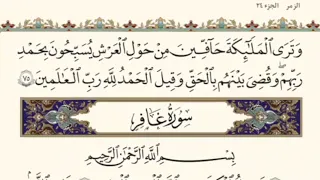 الزمر الجزء ٢٤
وَتَرَى ٱلْمَلَٰٓئِكَةَ حَآفِّينَ مِنْ حَوْلِ ٱلْعَرْشِ يُسَبِّحُونَ بِحَمْدِ
رَبِّهِمْ ۖ وَقُضِىَ بَيْنَهُم بِٱلْحَقِّ وَقِيلَ ٱلْحَمْدُ لِلَّهِ رَبِّ ٱلْعَٰلَمِينَ ٧٥
سُورَةُ غَافِرٍ
بِسْمِ ٱللَّهِ ٱلرَّحْمَٰنِ ٱلرَّحِيمِ